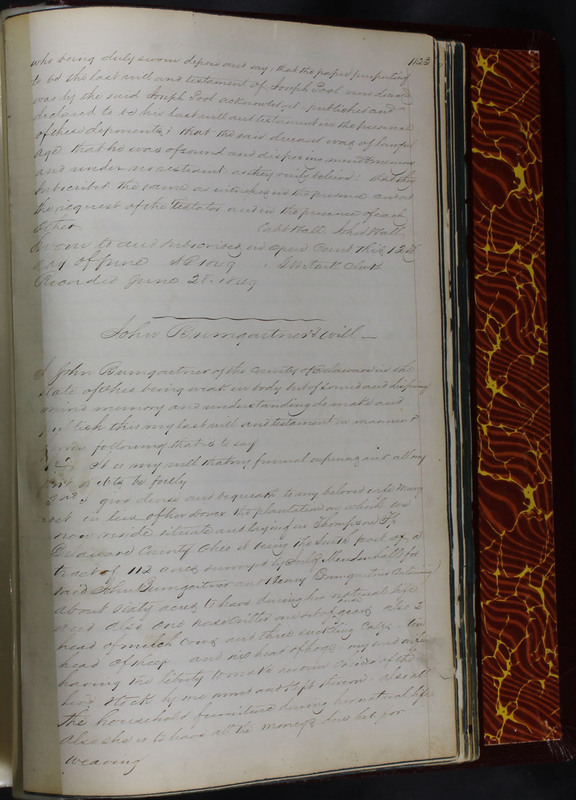 423
who being duly sworn depose and say, that the paper purporting
to be the last will and testament of Joseph Pool
was by the said Joseph Pool acknowledged published and
declared to be his last will and testament in the presence
of these deponents: that the said deceased was of lawful
age that he was of sound and disposing mind & memory
and under no restraint as they verily believe: that they
subscribed the same as witnesses in the presence and at
the request of the testator and in the presence of each
other Wall. John Wall.
Sworn to and subscribed in open Court this 12th
day of June AD 1849 Clerk
Recorded June 28. 1849
John Bumgartner's will
I John Bumgartner of the County of Delaware in the
State of Ohio being weak in body but of sound and disposing
mind memory and understanding do make and
publish this my last will and testament in manner &
form following that is to say
It is my will that my funeral expenses and all my
just debts be fully
2nd I give devise and bequeath to my beloved wife Mary
in lieu of her dower the plantation on which we
now reside situate and laying in Thompson Tp
Delaware County Ohio it being the South part of a
tract of 112 acres surveyed by Mendenhall for
said John Bumgartner and Henry Bumgartner Containing
about Sixty acres to have during her natural life
also one horse critter one set of gears also 2
head of milch cows and three suckling calves ten
head of sheep and six head of hogs my and
having the liberty to make of the
stock by me and kept thereon also all
the household furniture during her natural life
Also she is to have all the money due her for
weaving